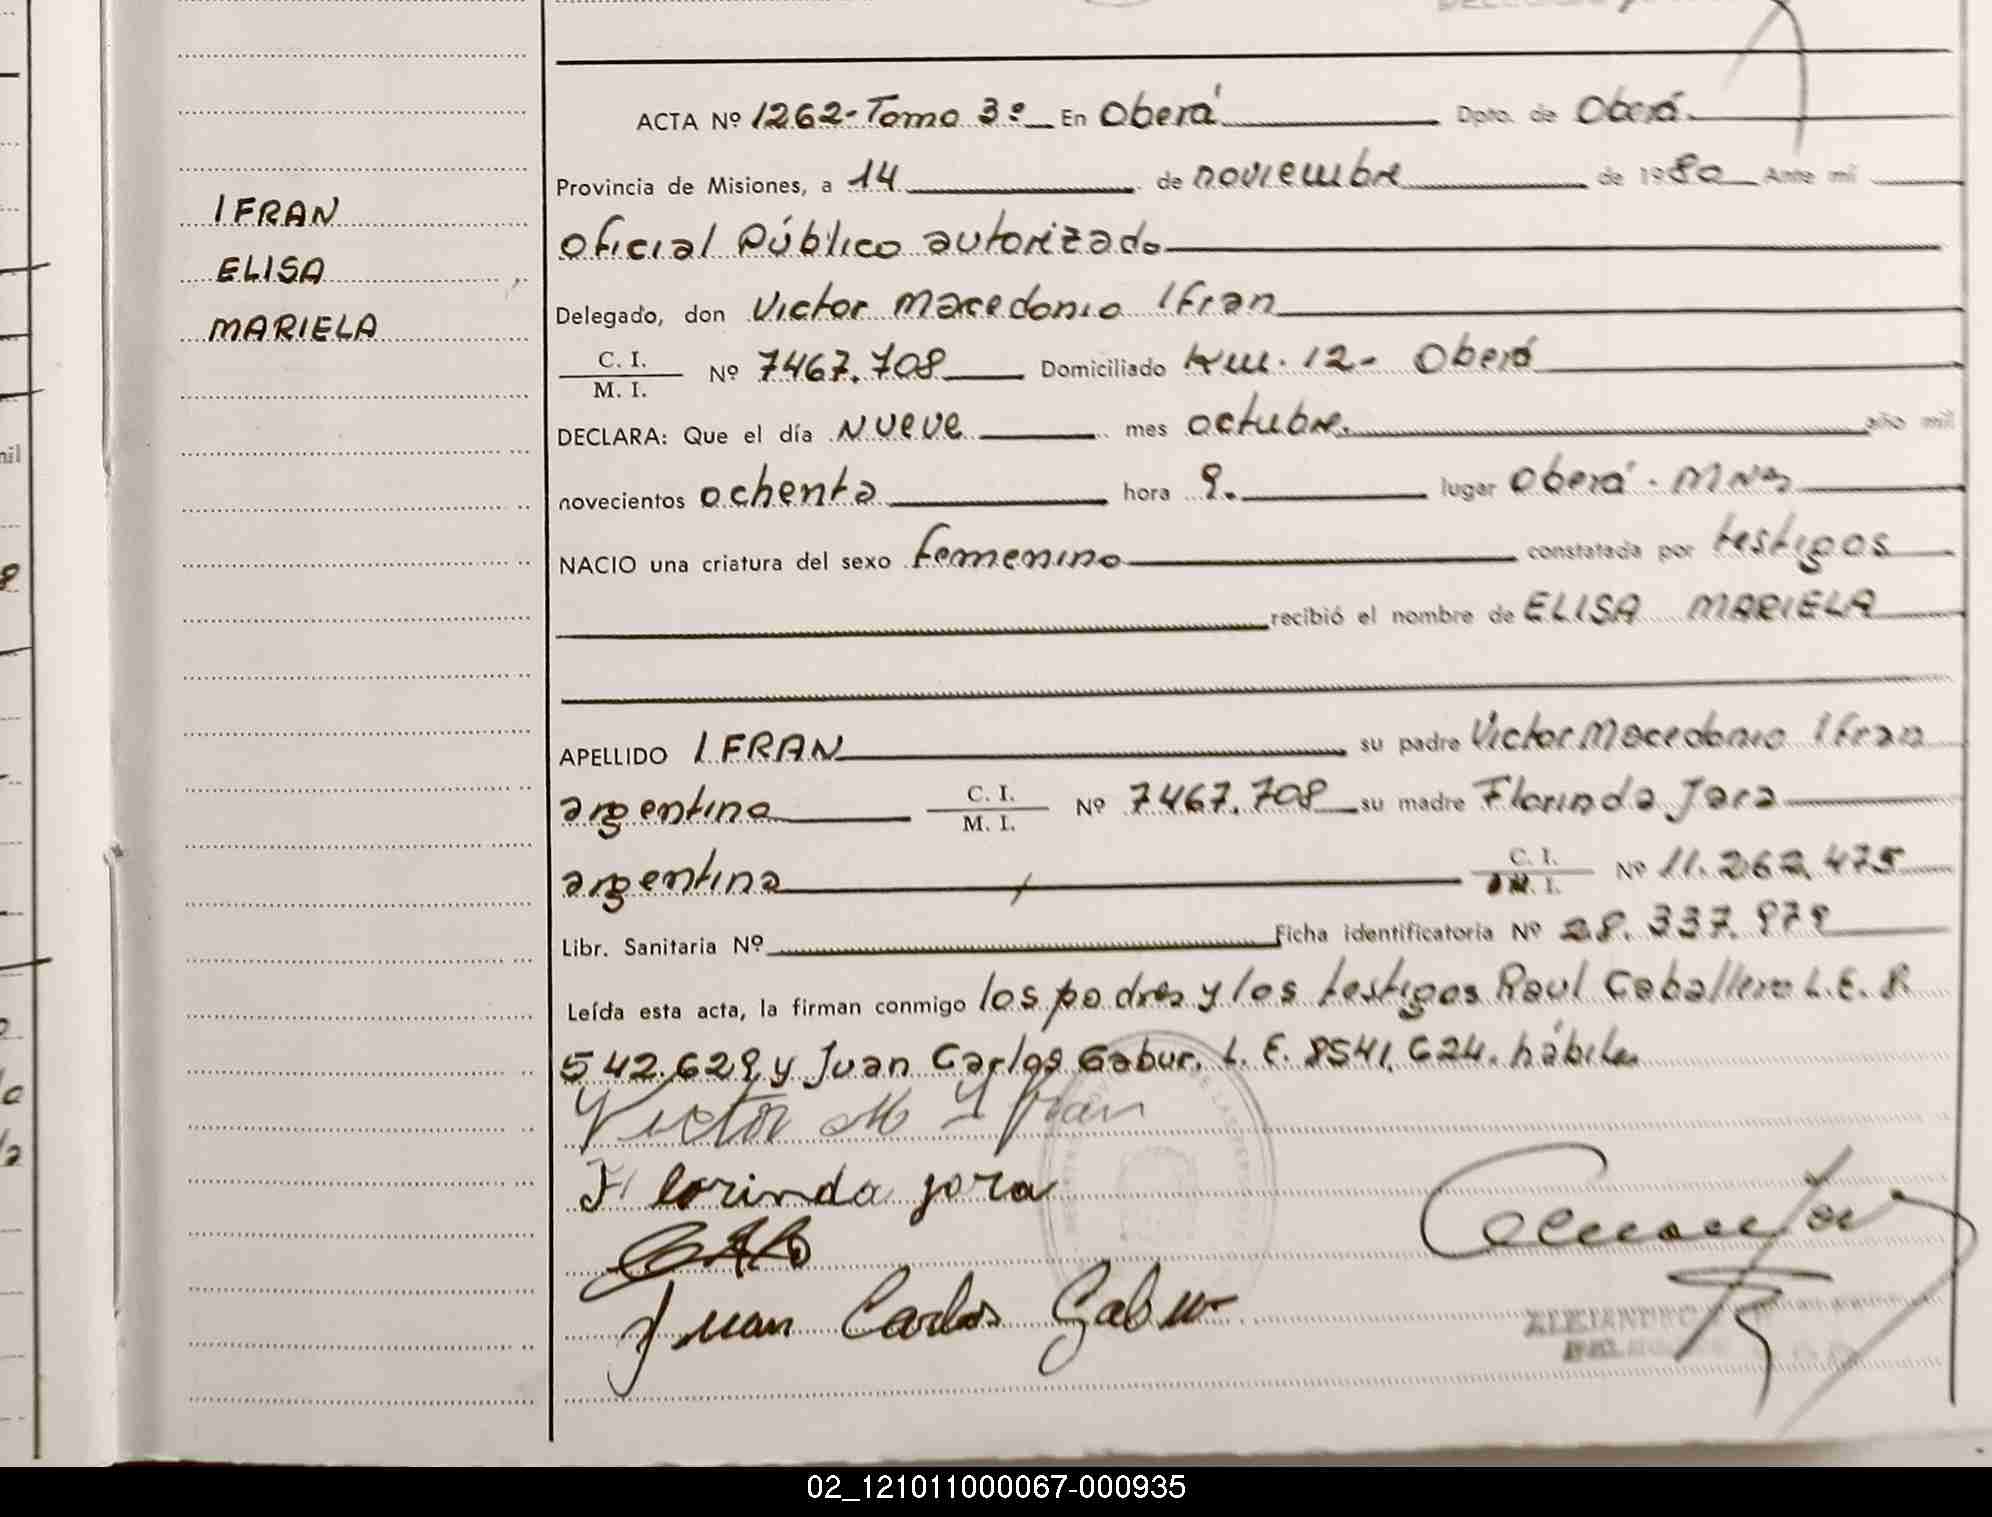 IFRAN
ELISA
MARIELA
ACTA Nº 1262-Tomo 3º En Oberá Dpto. de Oberá
Provincia de Misiones, a 14 de noviembre de 1980 Ante mi
oficial Público autorizado
Delegado, don Victor Macedonio Ifran
C. I.
M. I. Nº 7467.708 Domiciliado Km. 12- Oberá
DECLARA: Que el día Nueve mes octubre. año mil
novecientos ochenta hora 9. lugar Oberá. Mnes
NACIO una criatura del sexo femenino constatada por testigos
recibió el nombre de ELISA MARIELA
APELLIDO IFRAN su padre Victor Macedonio Ifran
argentino C. I. M. I. Nº 7467.708 su madre Florinda Jara
argentina C. I. M. I. Nº 11.262.475
Libr. Sanitaria Nº Ficha identificatoria Nº 28.337.979
Leída esta acta, la firman conmigo los padres y los testigos Raul Caballero L.E. 8.
542.629 y Juan Carlos Gabur. L. E. 8541.624. hábiles
Victor M Ifran
Florinda jara
Juan Carlos Gabur
02_121011000067-000935